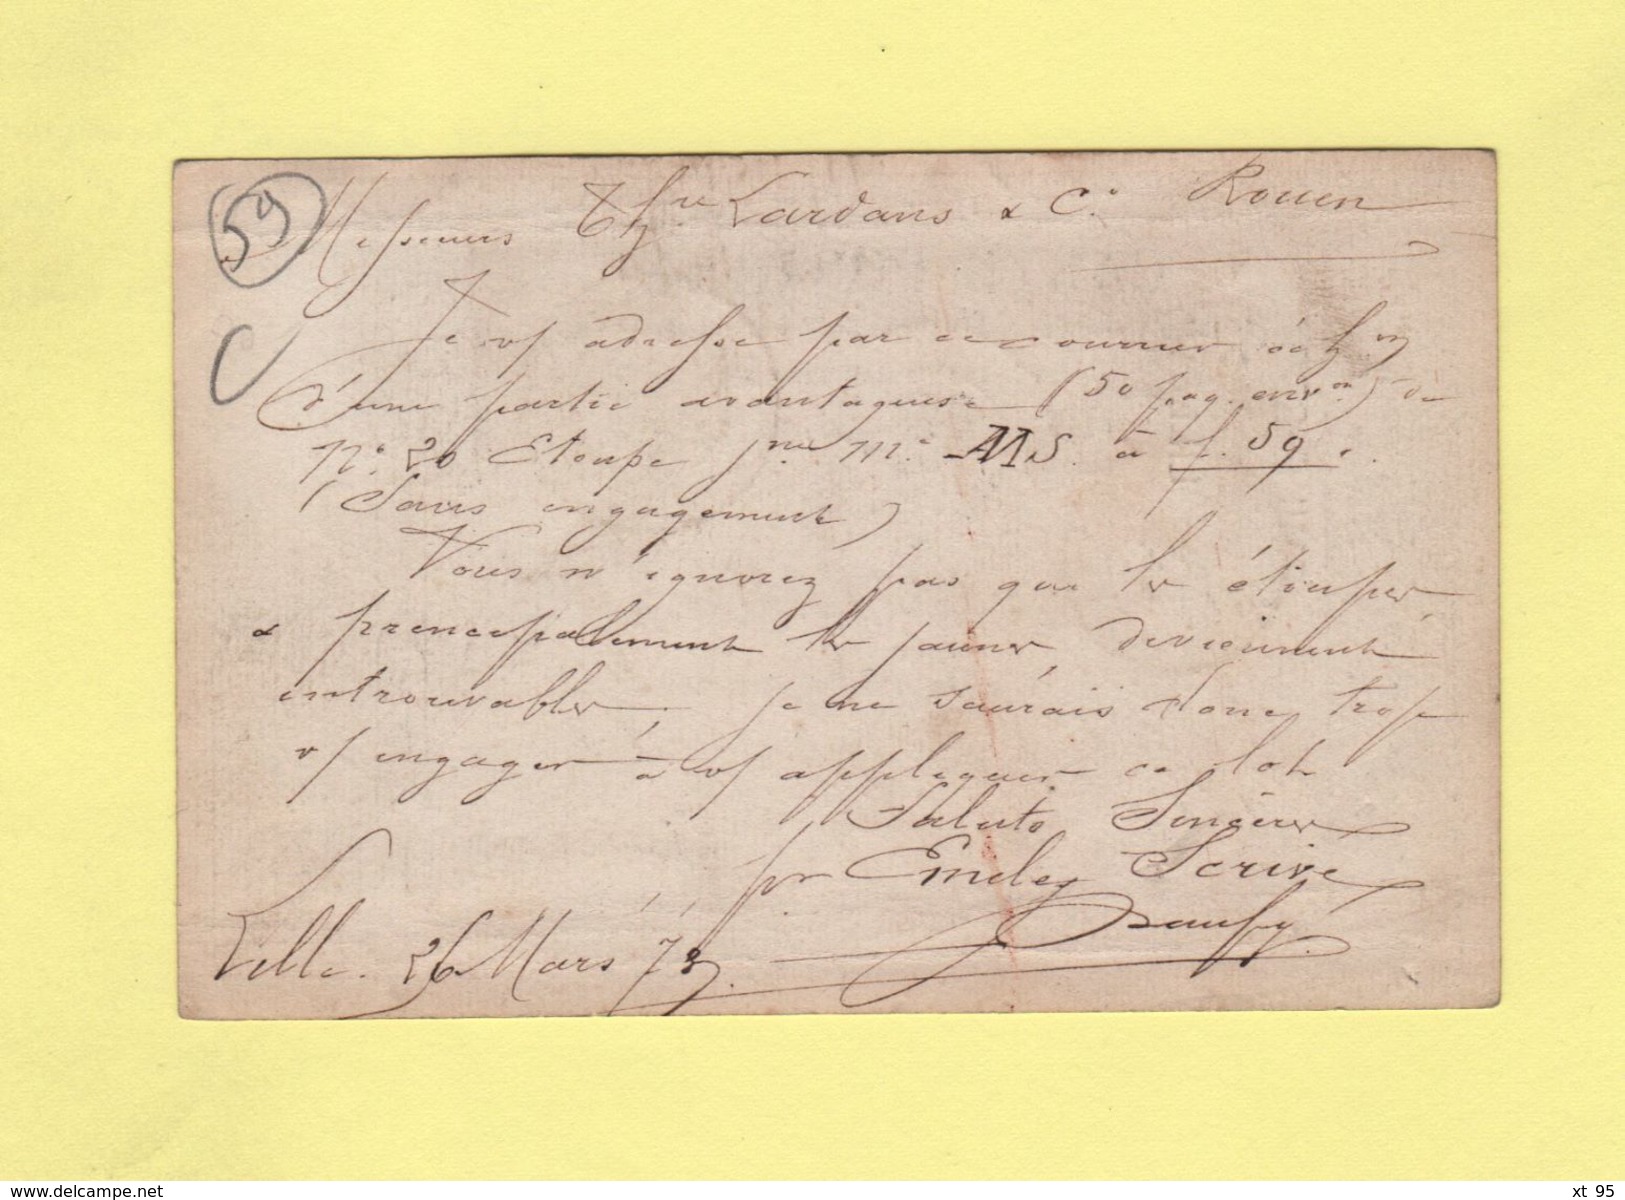 59
Messieurs Thre Lardans & Cie Rouen
Je vs adresse par ce courrier échon
d'une partie avantageuse (50 paq. envon) de
No 20 Etoupe jne Me AMS. à f. 59.
(Sans engagement)
Vous n'ignorez pas que les étoupes,
& principalement les jaunes, deviennent
introuvables; je ne saurais donc trop
vs engager à vs appliquer ce lot
Saluts Sincères
pr Emile Scrive
Lille. 26 Mars 73.
www.delcampe.net
xt 95